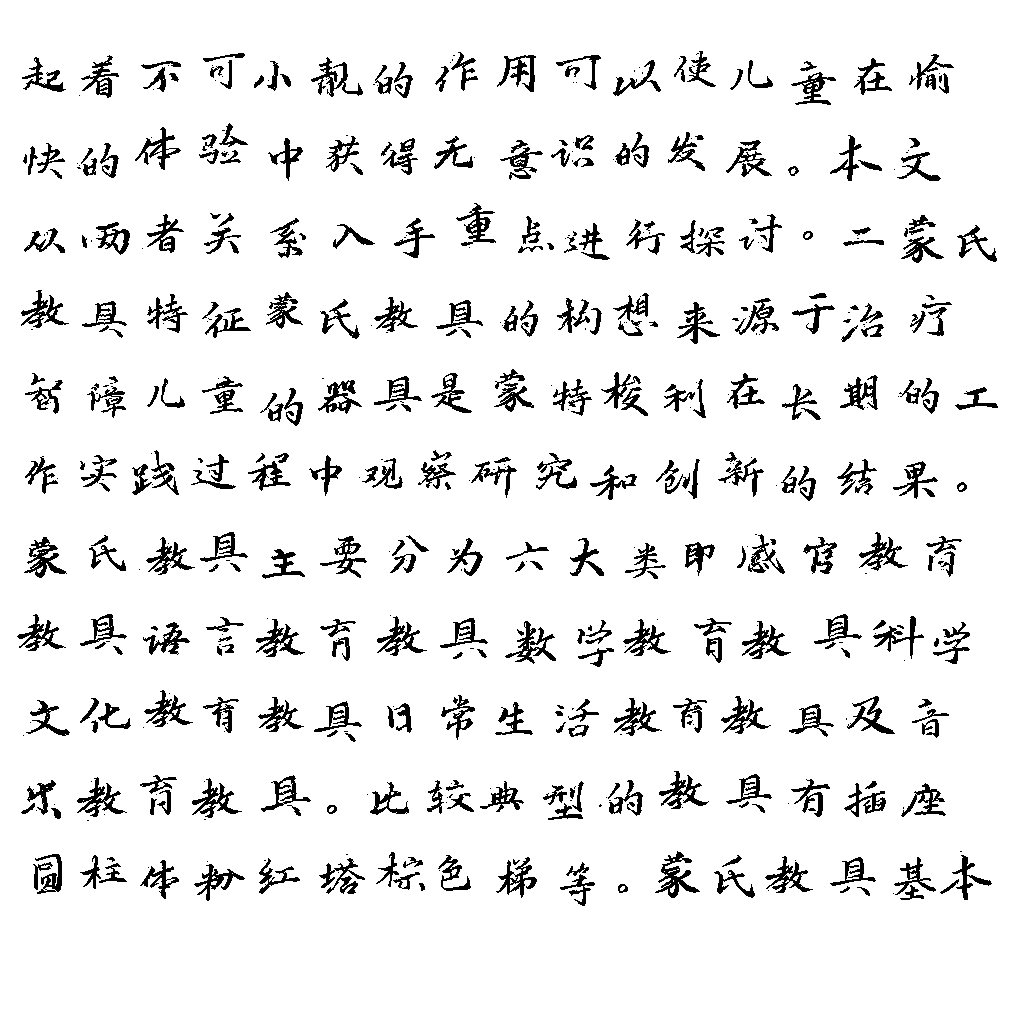 起着不可小靓的作用可以使儿童在愉
快的体验中获得无意识的发展。本文
从两者关系入手重点进行探讨。二蒙氏
教具特征蒙氏教具的构想来源于治疗
智障儿童的器具是蒙特梭利在长期的工
作实践过程中观察研究和创新的结果。
蒙氏教具主要分为六大类即感官教育
教具语言教育教具数学教育教具科学
文化教育教具日常生活教育教具及音
乐教育教具。比较典型的教具有插座
圆柱体粉红塔棕色梯等。蒙氏教具基本